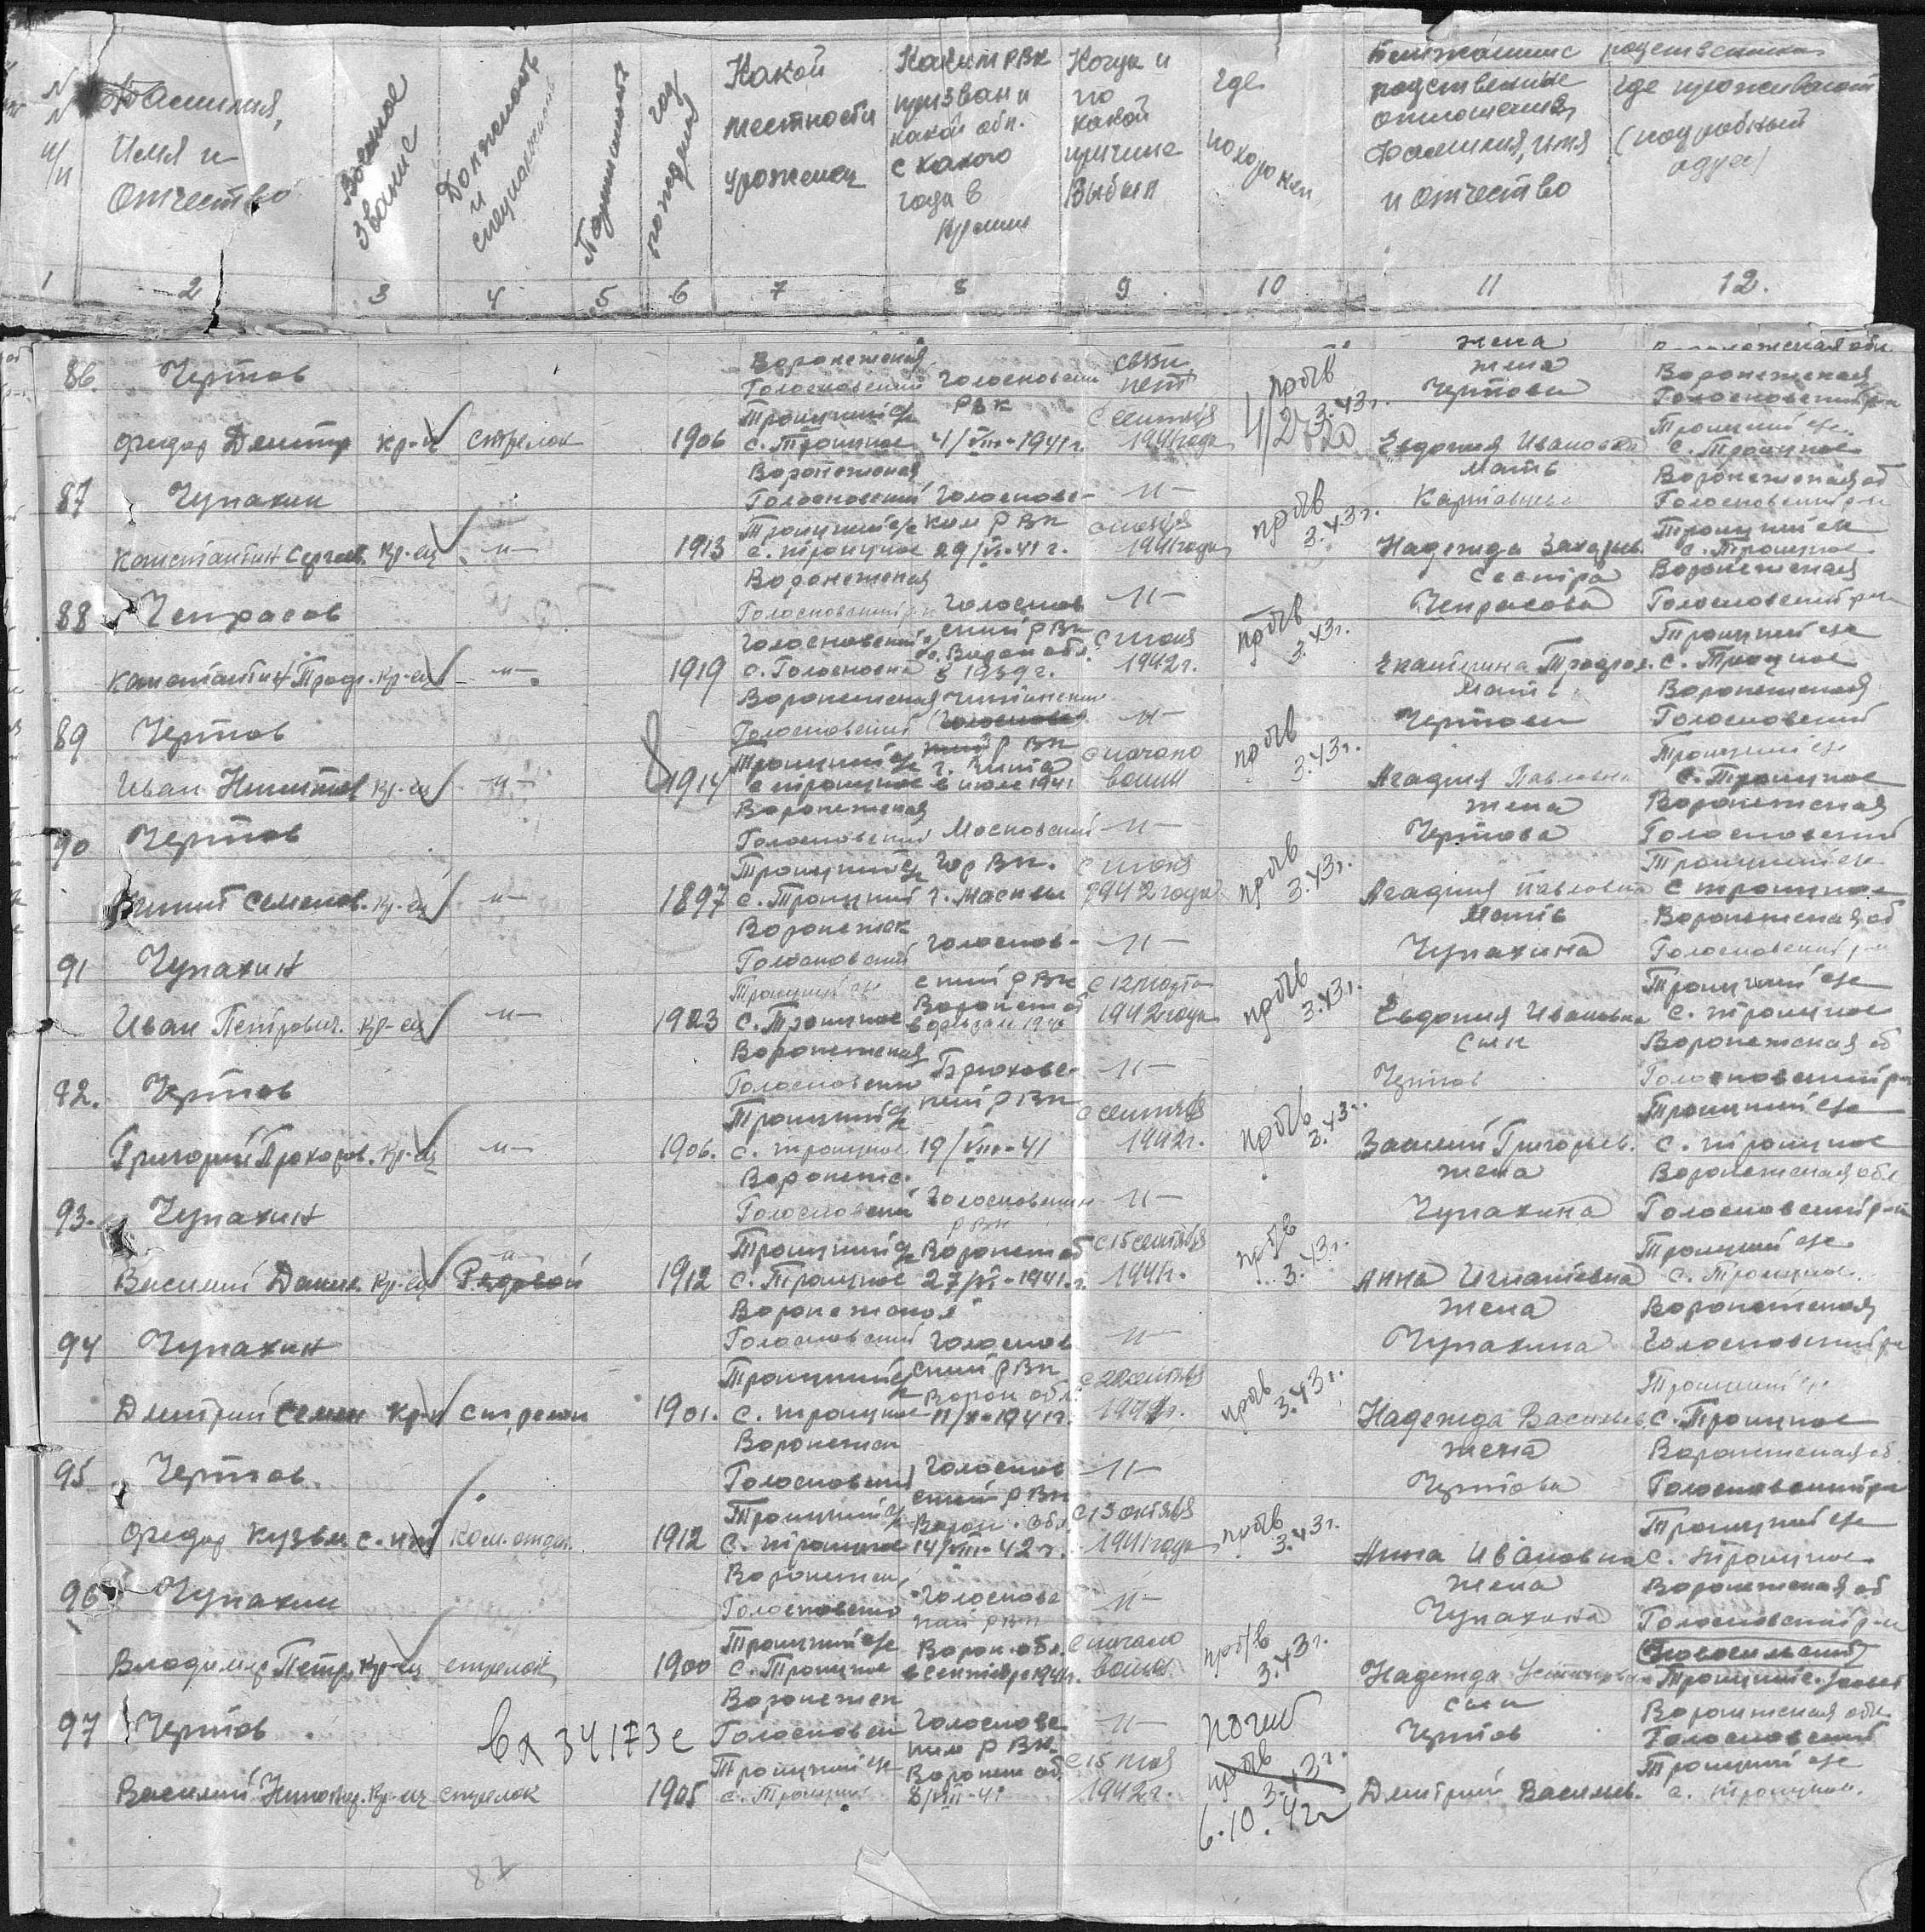 N
N
п/п
Фамилия,
Имя и
Отчество
Военное
Звание
Должность
и
специальность
Партийность
год
рождения
Какой
местности
уроженец
Каким РВК
призван и
какой обл.
с какого
года в
Армии
Когда и
по
какой
причине
Выбыл
где
похоронен
Ближайшие родственники
родственные
отношения,
Фамилия, имя
и отчество
где проживают
(подробный
адрес)
1 2 3 4 5 6 7 8 9 10 11 12.
жена
86. Чертов
Федор Дмитр кр-ц стрелок 1906
Воронежская
Голосновский
Троицкий с/с
с. Троицкое
Голосновский
РВК
4/VIII-1941г.
связи
нет
с сентября
1941 года
пр б/в
3.43г.
жена
Чертова
Евдокия Ивановна
Воронежская
Голосновский р-н
Троицкий с/с
с. Троицкое
87 Чупахин
Константин Сергеев. кр-ец -и- 1913
Воронежская
Голосновский
Троицкий с/с
с. Троицкое
Голоснов-
ким РВК
29/VI-41г.
-и-
1941 года
пр б/в
3.43г.
Мать
Надежда Захарьев.
Воронежская об
Голосновский р-н
Троицкий с/с
с. Троицкое
88 Чепрасов
Константин Трофи. кр-ец -и- 1919
Воронежская
Голосновский р-н
Голосновский с/с
с. Голосновка
Голоснов
ский РВК
Ворон обл.
в 1939г.
-и-
с июня
1942г.
пр б/в
3.43г.
Сестра
Чепрасова
Екатерина Трофим.
Воронежская
Голосновский р-н
Троицкий с/с
с. Троицкое
89 Чертов
Иван Никитов кр-ец -и- 1914
Воронежская
Голосновский
Троицкий с/с
с троицкое
Читинским
РВК
г. Чита
в июле 1941
-и-
с начала
войны
пр б/в
3.43г.
Мать
Чертова
Агафия Павловна
Воронежская
Голосновский
Троицкий с/с
с. Троицкое
90 Чертов
Никит Семенов. кр-ец -и- 1897
Воронежская
Голосновский
Троицкий с/с
с. Троицкий
Московский
гор ВК.
г. Москвы
-и-
с июня
1942 года
пр б/в
3.43г.
жена
Чертова
Агафия Павловна
Воронежская
Голосновский
Троицкий с/с
с троицкое
91 Чупахин
Иван Петрович. кр-ец -и- 1923
Воронежск
Голосновский
Троицкий с/с
с. Троицкое
Голоснов-
ский РВК
Воронеж об
-и-
с 12 марта
1942 года
пр б/в
3.43г.
Мать
Чупахина
Евдокия Ивановна
Воронежская об
Голосновский р-н
Троицкий с/с
с. троицкое
92. Чертов
Григорий Прохоров. кр-ец -и- 1906.
Воронежская
Голосновский
Троицкий с/с
с. троицкое
Брюхове-
кий РВК
19/VIII-41
-и-
с сентября
1942г.
пр б/в
3.43г.
Сын
Чертов
Василий Григорьев.
Воронежская об
Голосновский р-н
Троицкий с/с
с. троицкое
93. Чупахин
Василий Данил. кр-ец -и- Рядовой 1912
Воронежс.
Голосновский
Троицкий с/с
с. Троицкое
Голосновским
РВК
Воронеж об
27/VI-1941.г.
-и-
с 15 сентября
1941г.
пр б/в
3.43г.
жена
Чупахина
Анна Игнатьевна
Воронежская обл
Голосновский р-н
Троицкий с/с
с. Троицкое.
94 Чупахин
Дмитрий Семен кр-ц стрелок 1901.
Воронежской
Голосновский
Троицкий с/с
с. троицкое
Голоснов
ский РВК
Ворон обл.
11/X-1941г.
-и-
пр б/в
3.43г.
жена
Чупахина
Надежда Васильев
Воронежская
Голосновский р-н
Троицкий с/с
с. Троицкое
95 Чертов.
Федор Кузьм с-нт Ком. отдел. 1912
Воронежск
Голосновский
Троицкий с/с
с. троицкое
Голоснов
ский РВК
Ворон. обл.
14/VIII-42г.
-и-
с 15 октября
1941 года
пр б/в
3.43г.
жена
Чертова
Анна Ивановна
Воронежская об.
Голосновский р-н
Троицкий с/с
с. троицкое
96 Чупахин
Владимир Петр. кр-ец стрелок 1900
Воронежск
Голосновско
Троицкий с/с
с. Троицкое
Голоснове
кий РВК
Ворон. обл.
в сентябре 1941г.
-и-
с начало
войны
пр б/в
3.43г.
жена
Чупахина
Надежда
Воронежская об
Голосновский р-н
(Новосильский)
97 Чертов
Василий Никифор. кр-ец стрелок 1905
вх 34173с
Воронежск
Голосновски
Троицкий с/с
с. Троицкое
Голоснове
ким РВК
Воронеж об.
8/VII-41
-и-
с 15 мая
1942г.
погиб
пр б/в
3.43г.
6.10.42г
сын
Чертов
Дмитрий Васильев.
Воронежская обл.
Голосновский
Троицкий с/с
с. троицкое.
87